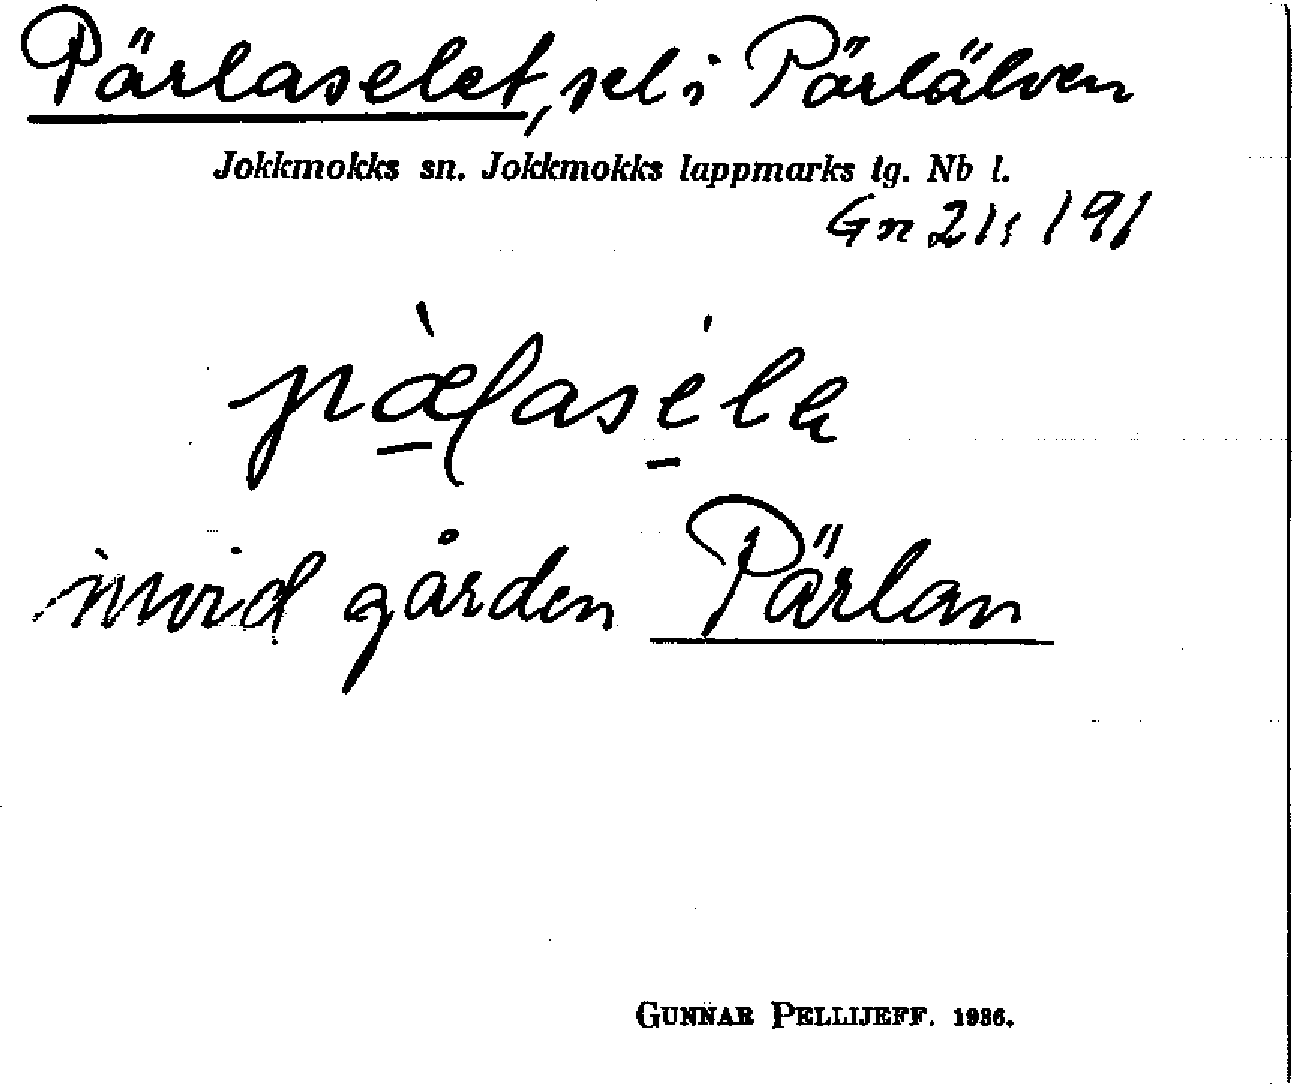 Pärlaselet, sel i Pärlälven
Jokkmokks sn. Jokkmokks lappmarks tg. Nb l.
Gn 21s 191
invid gården Pärlan
GUNNAR PELLIJEFF. 1986.